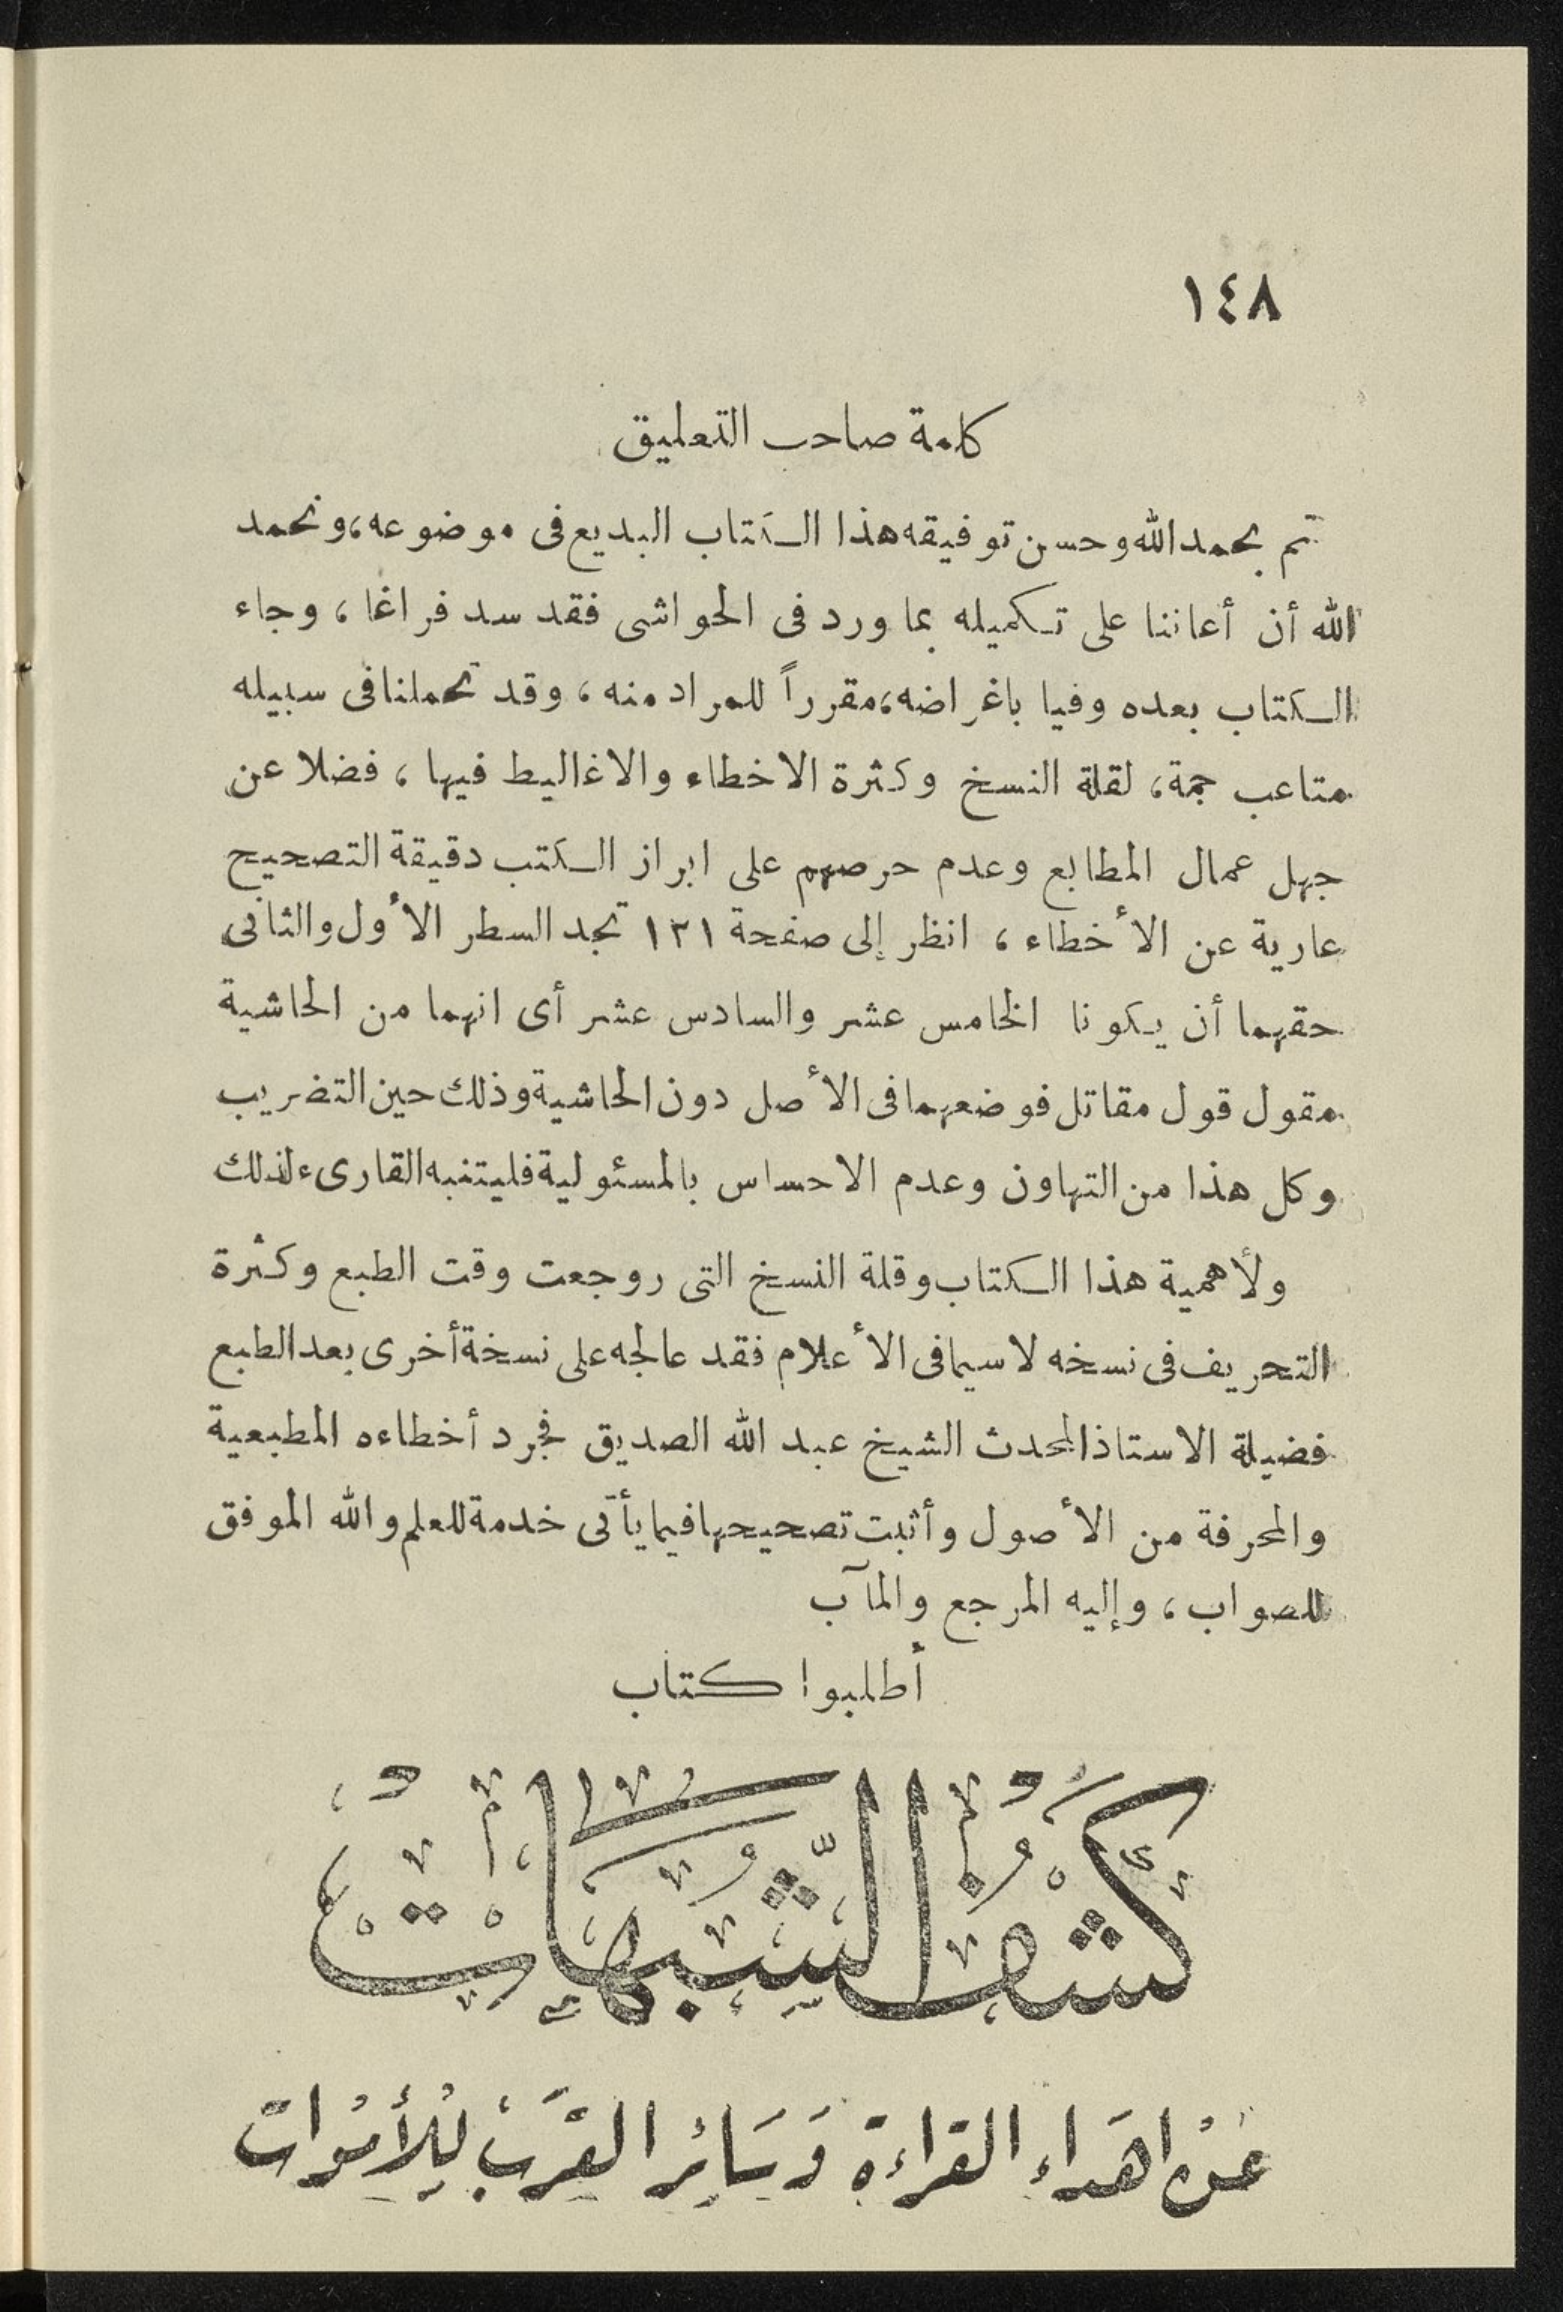 ١٤٨
كلمة صاحب التعليق
تم بحمد الله وحسن توفيقه هذا الكتاب البديع فى موضوعه، ونحمد
الله أن أعاننا على تكميله بما ورد فى الحواشى فقد سد فراغا، وجاء
الكتاب بعده وفيا باغراضه، مقرراً للمراد منه، وقد تحملنا فى سبيله
متاعب جمة، لقلة النسخ وكثرة الاخطاء والاغاليط فيها، فضلا عن
جهل عمال المطابع وعدم حرصهم على ابراز الكتب دقيقة التصحيح
عارية عن الأخطاء، انظر إلى صفحة ١٣١ تجد السطر الأول والثانى
حقهما أن يكونا الخامس عشر والسادس عشر أى انهما من الحاشية
مقول قول مقاتل فوضعهما فى الأصل دون الحاشية وذلك حين التضريب
وكل هذا من التهاون وعدم الاحساس بالمسئولية فليتنبه القارىء لذلك
ولأهمية هذا الكتاب وقلة النسخ التى روجعت وقت الطبع وكثرة
التحريف فى نسخه لاسيما فى الأعلام فقد عالجه على نسخة أخرى بعد الطبع
فضيلة الاستاذ المحدث الشيخ عبد الله الصديق فجرد أخطاءه المطبعية
والمحرفة من الأصول وأثبت تصحيحها فيما يأتى خدمة للعلم والله الموفق
للصواب، وإليه المرجع والمآب
أطلبوا كتاب
كشف الشبهات
عن اهداء القراءة وسائر القرب للأموات